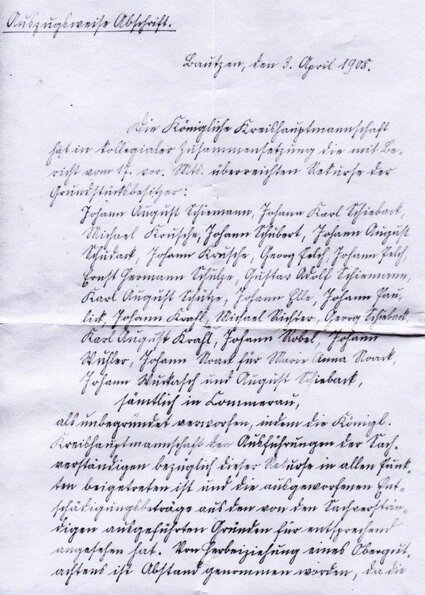 Auszugsweise Abschrift.
Bautzen, den 3. April 1908.
Die Königliche Kreishauptmannschaft
hat in kollegialer Zusammensetzung die mit Be-
richt vom 17. vor. Mts. überreichten Rekurse der
Grundstücksbesitzer:
Johann August Schiemann, Johann Karl Schieback,
Michael Krusche, Johann Schubert, Johann August
Schuback, Johann Krusche, Georg Pelch, Johann Pelch
Ernst Hermann Schulze, Gustav Adolf Schiemann,
Karl August Schulze, Johann Elle, Johann Pau-
lick, Johann Krahl, Michael Richter, Georg Schieback
Karl August Krahl, Johann Nobel, Johann
Johann Noack für Marie Anna Noack,
Johann Wukasch und August Schieback,
sämtlich in Commerau,
als unbegründet verworfen, indem die Königl.
Kreishauptmannschaft den Ausführungen der Sach-
verständigen bezüglich dieser Rekurse in allen Punk-
ten beigetreten ist und die ausgeworfenen Ent-
schädigungsbeträge aus den von den Sachverstän-
digen ausgeführten Gründen für entsprechend
angesehen hat. Von Herbeiziehung eines Obergut-
achtens ist Abstand genommen worden, da die